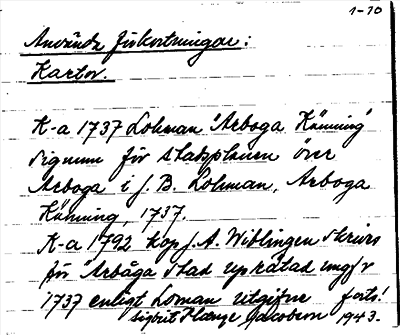 1-70
Använda förkortningar:
Kartor.
K-a 1737 Lohman "Arboga Känning"
signum för stadsplanen över
Arboga i J. B. Lohman, Arboga
Känning, 1737.
K-a 1792 kop J. A. Wiblingen skrivs
för Arboga stad upprättad
1737 enligt Loman utgifne forts!
Sigbrit Plange Jacobson 1943.